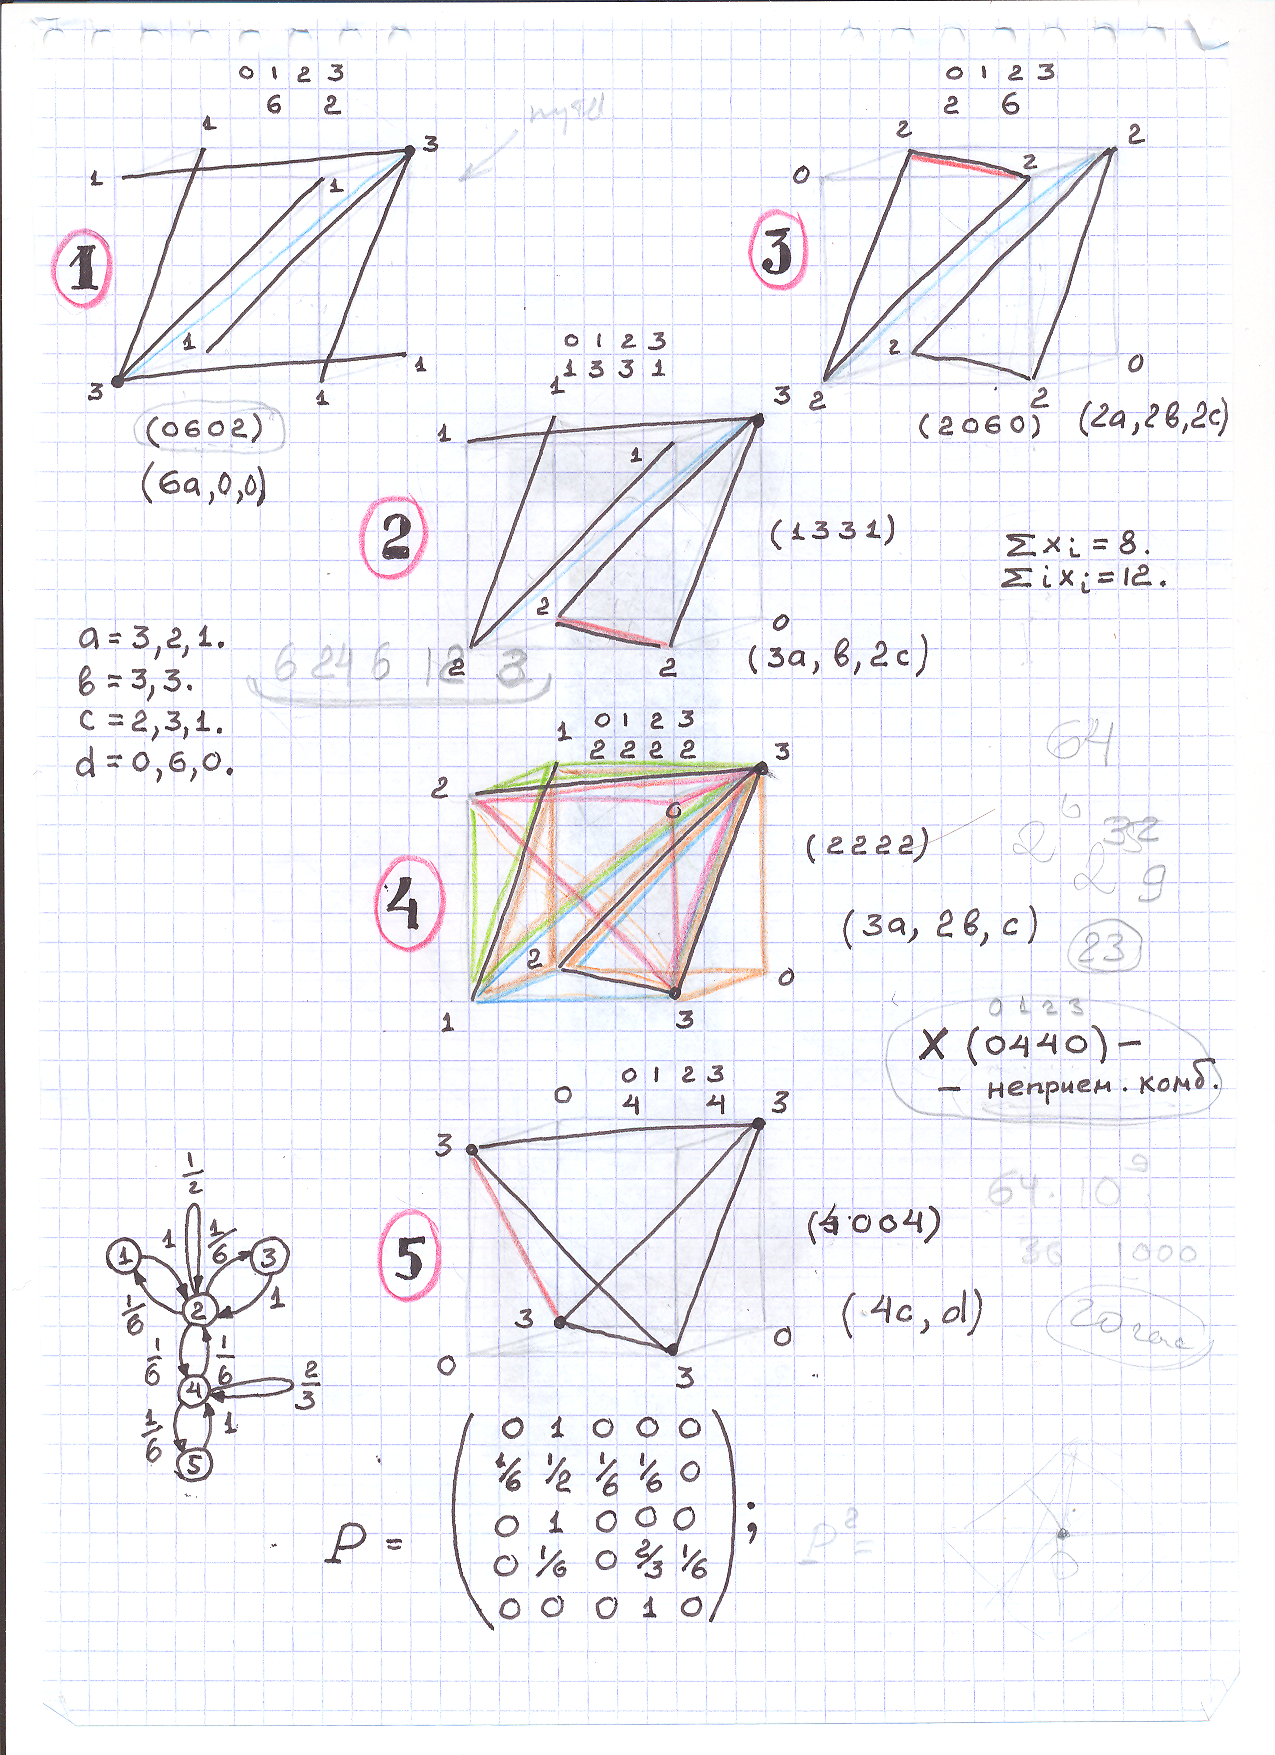 0 1 2 3
6 2
1
1
3
1
1
1
1
3
1
(0602)
(6a,0,0)
0 1 2 3
2 6
2
2
2
0
3
2
2
2
0
(2060) (2a,2в,2c)
0 1 2 3
1 3 3 1
1
3
1
1
2
2
2
2
0
(1331)
(3a, в, 2c)
Σxᵢ=8.
Σixᵢ=12.
a=3,2,1.
в=3,3.
c=2,3,1.
d=0,6,0.
6 24 6 12 3
0 1 2 3
2 2 2 2
1
3
2
0
4
2
0
1
3
(2222)
(3a, 2в, c)
64
2⁶ 32
2 9
23
0 1 2 3
X (0440) –
– неприем. комб.
0 1 2 3
4 4
0
3
3
5
3
0
0
3
(4004)
(4c, d)
64·10⁹
36 1000
20 час
1/2
1
1/6
1
3
1/6
2
1
1/6
1/6
4
2/3
1/6
1
5
P =
0 1 0 0 0
1/6 1/2 1/6 1/6 0
0 1 0 0 0
0 1/6 0 2/3 1/6
0 0 0 1 0
;
P² =